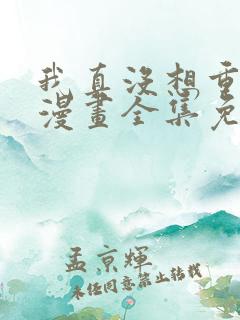 我真没想重
漫畫全集免
孟京輝
未经同意禁止转载